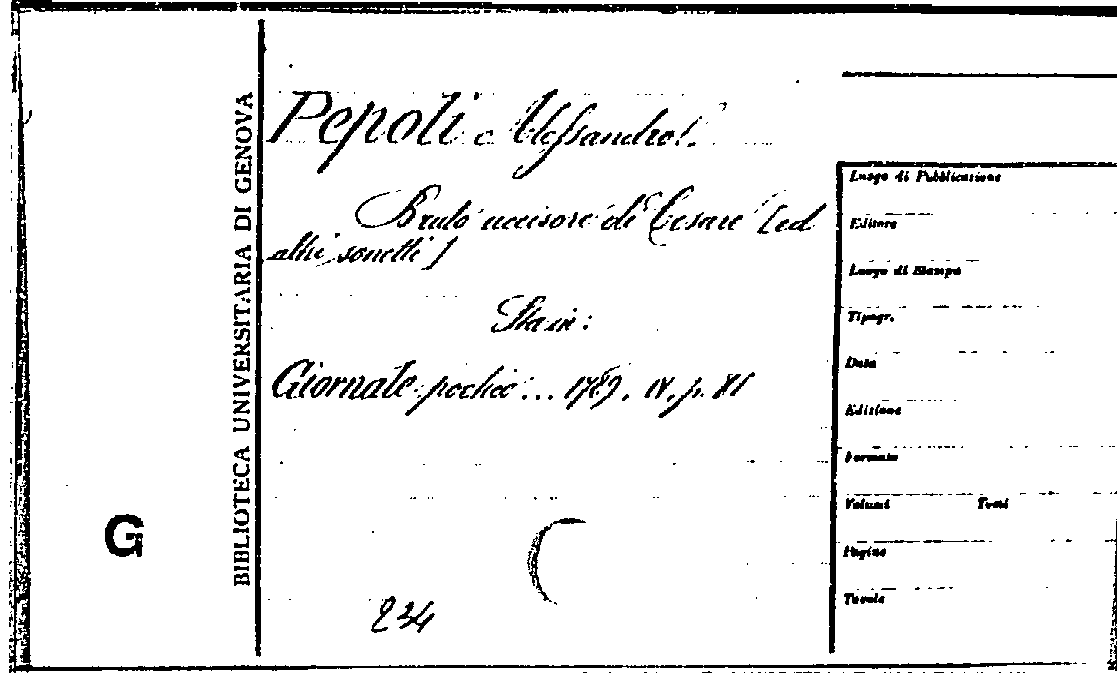 BIBLIOTECA UNIVERSITARIA DI GENOVA
G
Pepoli Alessandro.
Bruto uccisore di Cesare [ed
altri sonetti]
Sta in:
Giornale poetico... 1789. IV, p. 81
234
Luogo di Pubblicazione
Editore
Luogo di Stampa
Tipogr.
Data
Edizione
Formato
Volumi Tomi
Pagine
Tavole